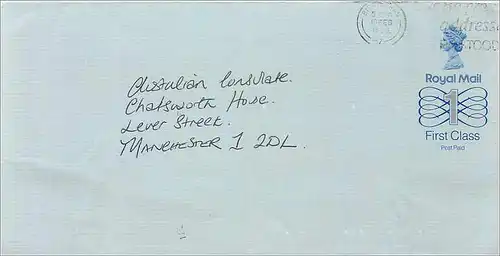 addresse
Royal Mail
1
First Class
Post Paid
Australian Consulate.
Chatsworth House.
Lever Street.
MANCHESTER 1 2DL.